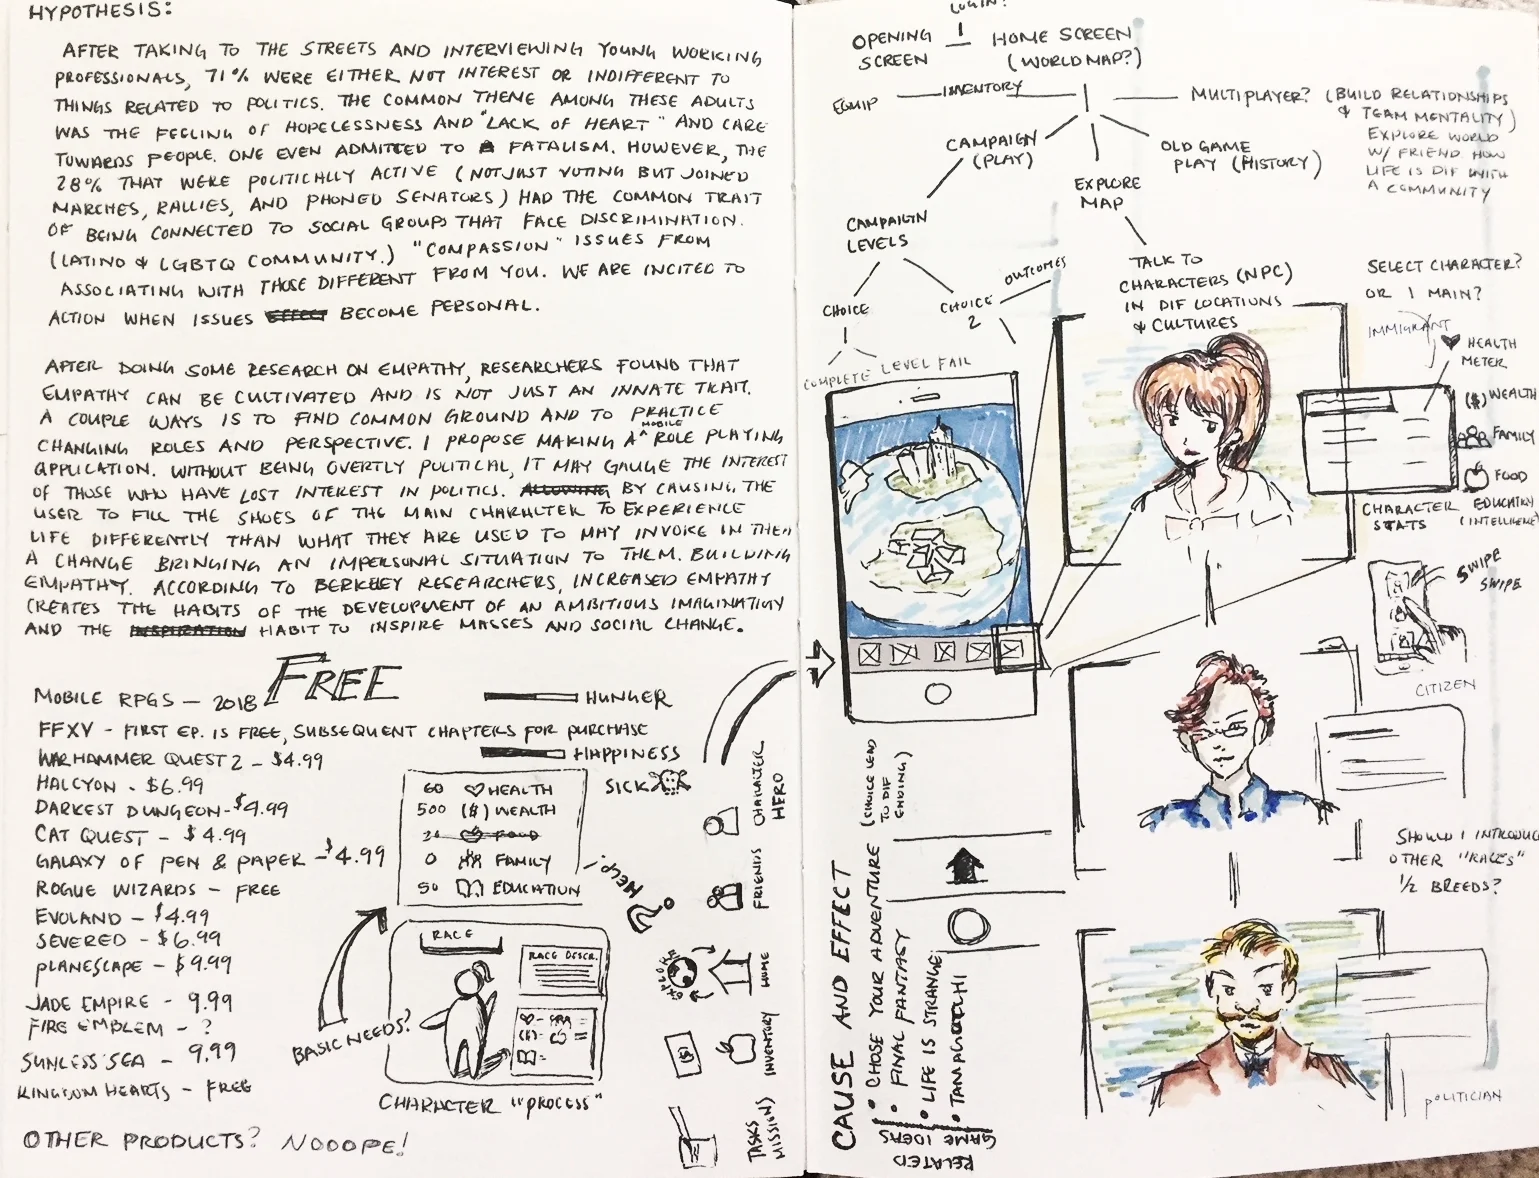 HYPOTHESIS:
AFTER TAKING TO THE STREETS AND INTERVIEWING YOUNG WORKING
PROFESSIONALS, 71% WERE EITHER NOT INTEREST OR INDIFFERENT TO
THINGS RELATED TO POLITICS. THE COMMON THEME AMONG THESE ADULTS
WAS THE FEELING OF HOPELESSNESS AND "LACK OF HEART" AND CARE
TOWARDS PEOPLE. ONE EVEN ADMITTED TO FATALISM. HOWEVER, THE
28% THAT WERE POLITICALLY ACTIVE (NOT JUST VOTING BUT JOINED
MARCHES, RALLIES, AND PHONED SENATORS) HAD THE COMMON TRAIT
OF BEING CONNECTED TO SOCIAL GROUPS THAT FACE DISCRIMINATION.
(LATINO & LGBTQ COMMUNITY.) "COMPASSION" ISSUES FROM
ASSOCIATING WITH THOSE DIFFERENT FROM YOU. WE ARE INCITED TO
ACTION WHEN ISSUES EFFECT BECOME PERSONAL.
AFTER DOING SOME RESEARCH ON EMPATHY, RESEARCHERS FOUND THAT
EMPATHY CAN BE CULTIVATED AND IS NOT JUST AN INNATE TRAIT.
A COUPLE WAYS IS TO FIND COMMON GROUND AND TO PRACTICE
CHANGING ROLES AND PERSPECTIVE. I PROPOSE MAKING A ^ MOBILE ROLE PLAYING
APPLICATION. WITHOUT BEING OVERTLY POLITICAL, IT MAY GAUGE THE INTEREST
OF THOSE WHO HAVE LOST INTEREST IN POLITICS. ALLOWING BY CAUSING THE
USER TO FILL THE SHOES OF THE MAIN CHARACTER TO EXPERIENCE
LIFE DIFFERENTLY THAN WHAT THEY ARE USED TO MAY INVOKE IN THEM
A CHANGE BRINGING AN IMPERSONAL SITUATION TO THEM. BUILDING
EMPATHY. ACCORDING TO BERKLEY RESEARCHERS, INCREASED EMPATHY
CREATES THE HABITS OF THE DEVELOPMENT OF AN AMBITIOUS IMAGINATION
AND THE INSPIRATION HABIT TO INSPIRE MASSES AND SOCIAL CHANGE.
FREE
MOBILE RPGS - 2018
FFXV - FIRST EP. IS FREE, SUBSEQUENT CHAPTERS FOR PURCHASE
WARHAMMER QUEST 2 - $4.99
HALCYON - $6.99
DARKEST DUNGEON - $4.99
CAT QUEST - $4.99
GALAXY OF PEN & PAPER - $4.99
ROGUE WIZARDS - FREE
EVOLAND - $4.99
SEVERED - $6.99
PLANESCAPE - $9.99
JADE EMPIRE - 9.99
FIRE EMBLEM - ?
SUNLESS SEA - 9.99
KINGDOM HEARTS - FREE
OTHER PRODUCTS? NOOOPE!
HUNGER
HAPPINESS
60 HEALTH
500 ($) WEALTH
FOOD
0 FAMILY
50 EDUCATION
SICK
HELP!
BASIC NEEDS?
RACE
RACE DESCR.
CHARACTER "PROCESS"
CHARACTER
HERO
FRIENDS
HOME
EXPLORE
INVENTORY
($)
TASKS
MISSION)
LOGIN?
OPENING
SCREEN
HOME SCREEN
(WORLD MAP?)
EQUIP
INVENTORY
MULTIPLAYER? (BUILD RELATIONSHIPS
& TEAM MENTALITY)
EXPLORE WORLD
W/ FRIEND HOW
LIFE IS DIF WITH
A COMMUNITY
CAMPAIGN
(PLAY)
OLD GAME
PLAY (HISTORY)
EXPLORE
MAP
CAMPAIGN
LEVELS
CHOICE
CHOICE
2
OUTCOMES
COMPLETE LEVEL FAIL
TALK TO
CHARACTERS (NPC)
IN DIF LOCATIONS
& CULTURES
SELECT CHARACTER?
OR 1 MAIN?
IMMIGRANT
HEALTH
METER
($) WEALTH
FAMILY
FOOD
EDUCATION
(INTELLIGENCE)
CHARACTER
STATS
SWIPE
SWIPE
CITIZEN
SHOULD I INTRODUCE
OTHER "RACES"
1/2 BREEDS?
POLITICIAN
CAUSE AND EFFECT
(CHOICE LEAD
TO DIF
ENDING)
• CHOSE YOUR ADVENTURE
• FINAL FANTASY
• LIFE IS STRANGE
• TAMAGOTCHI
RELATED
GAME IDEAS